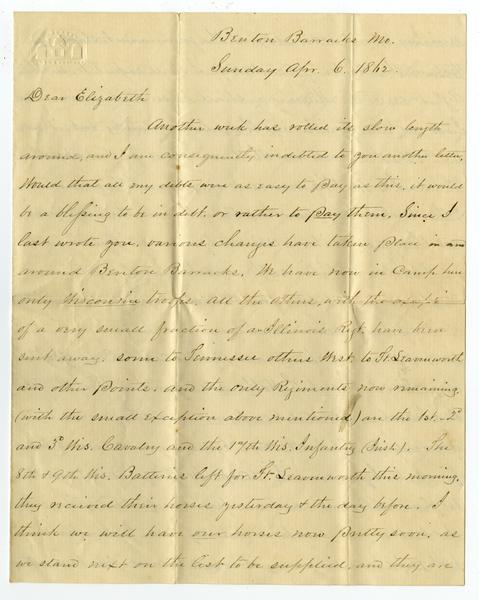 Benton Barracks Mo.
Sunday Apr. 6. 1862.
Dear Elizabeth
Another week has rolled its slow length
around, and I am consequently indebted to you another letter,
Would that all my debts were as easy to pay as this, it would
be a blessing to be in debt, or rather to pay them. Since I
last wrote you, various changes have taken place in and
around Benton Barracks. We have now in Camp here
only Wisconsin troops, all the others, with the
of a very small fraction of an Illinois Regt. have been
sent away, some to Tennessee others West. to Ft. Leavenworth
and other points. and the only Regiments now remaining,
(with the small exception above mentioned) are the 1st. 2d
and 3d Wis. Cavalry and the 17th Wis. Infantry (Irish). The
8th & 9th Wis. Batteries left for Ft. Leavenworth this morning.
they received their horses yesterday & the day before. I
think we will have our horses now pretty soon, as
we stand next on the list to be supplied, and they are